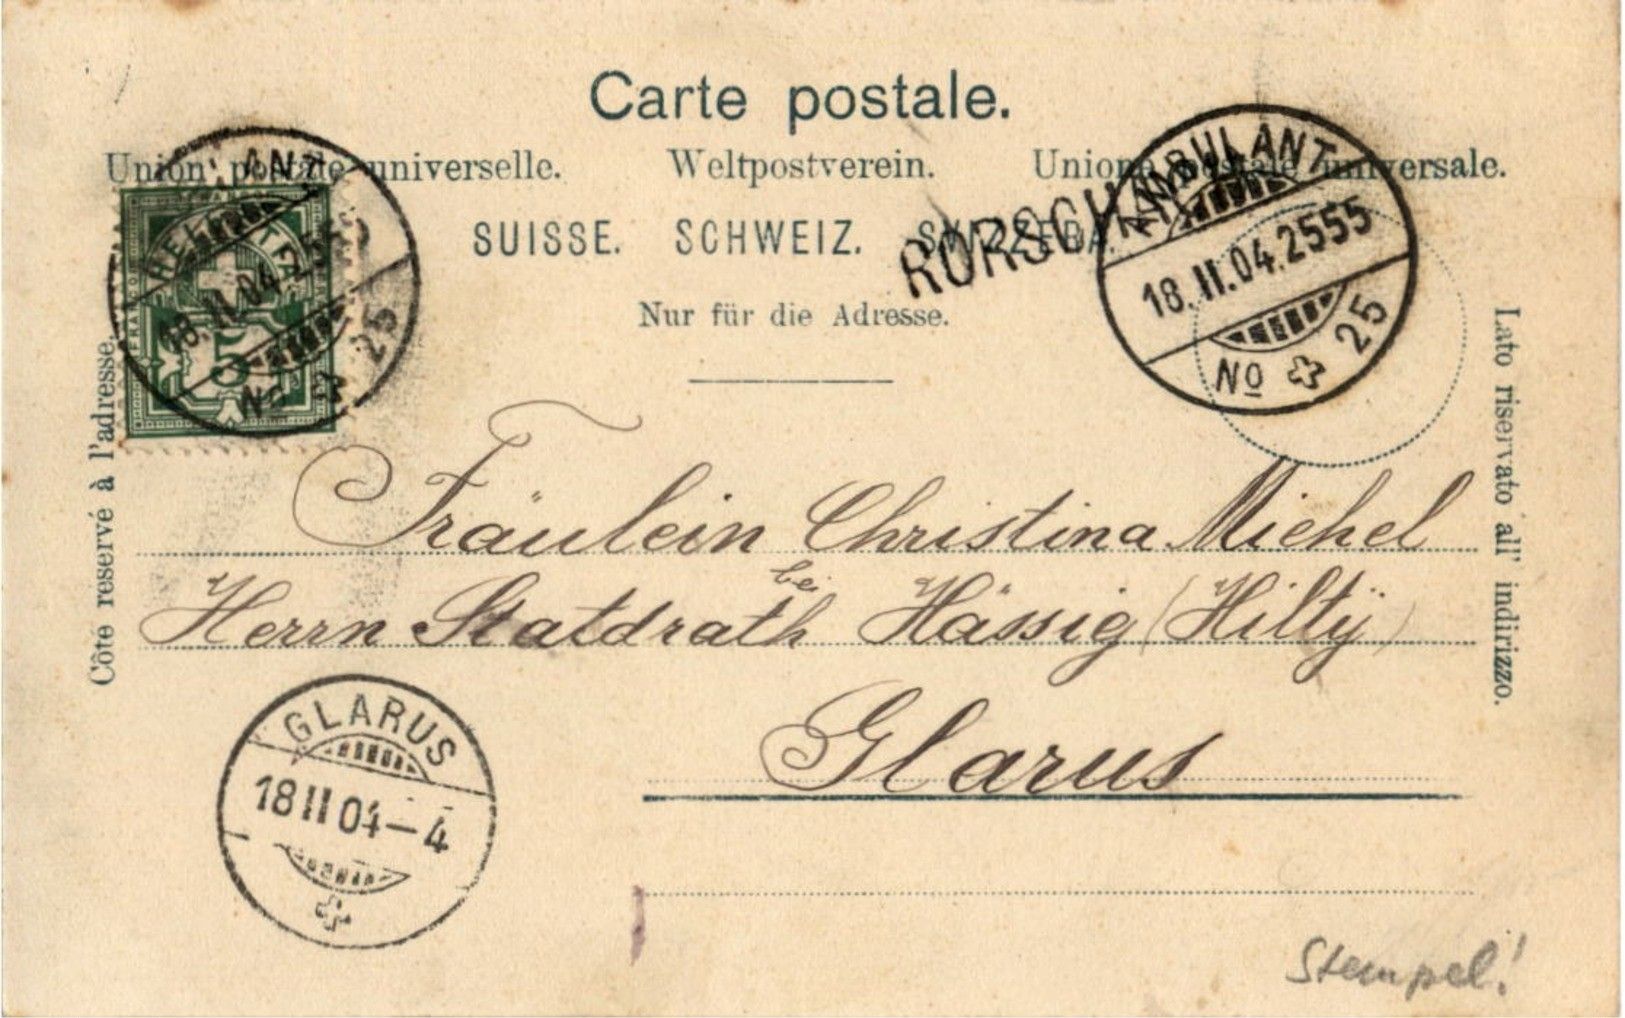 Carte postale.
Union postale universelle. Weltpostverein. Unione postale universale.
SUISSE. SCHWEIZ. SVIZZERA.
Nur für die Adresse.
Côté reservé à l'adresse.
Lato riservato all' indirizzo.
HELVETIA
FRANCO
5
AMBULANT
18.II.04.2555
No 25
RORSCHACH
AMBULANT
18.II.04.2555
No 25
Fräulein Christina Michel
bei
Herrn Statdrath Hässig (Hilty)
Glarus
GLARUS
18 II 04-4
Stempel!